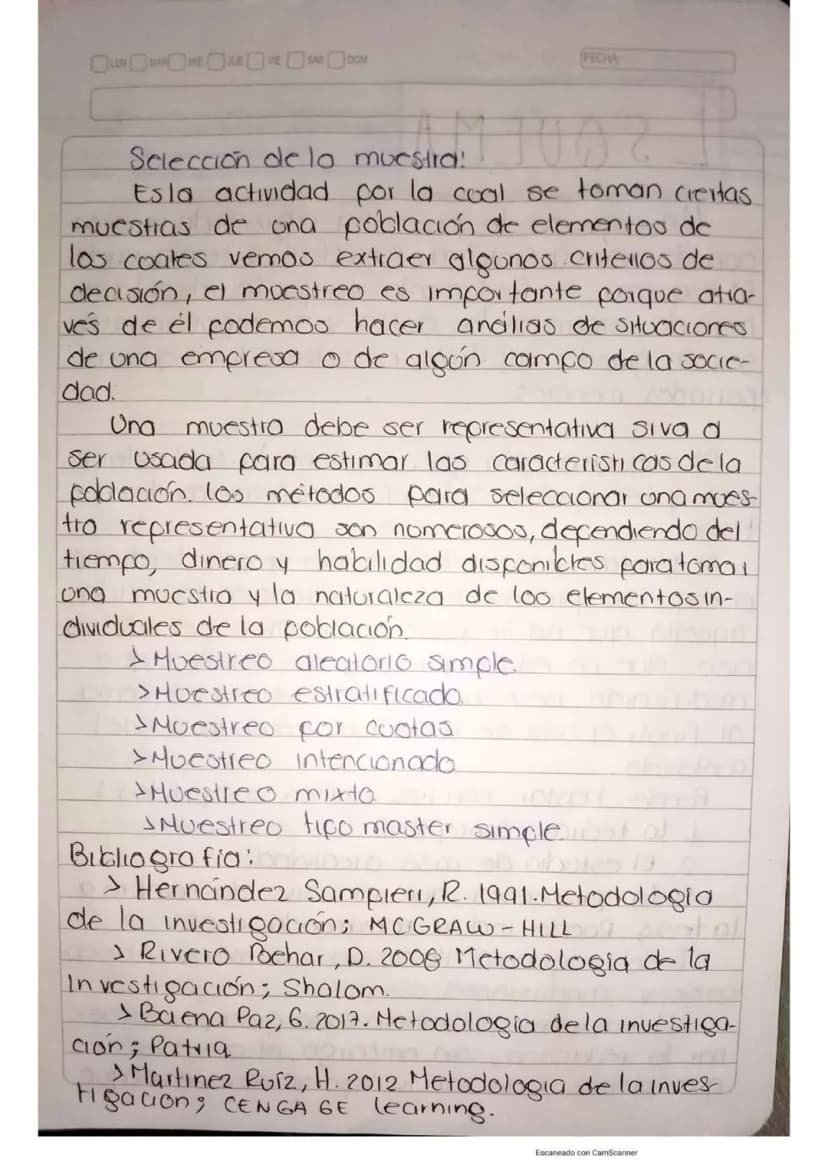 LUN MAR MIE JUE VIE SAB DOM FECHA
Selección de la muestra:
Es la actividad por la cual se toman ciertas
muestras de una población de elementos de
los cuales vemos extraer algunos criterios de
decisión, el muestreo es importante porque atra-
vés de él podemos hacer análias de situaciones
de una empresa o de algún campo de la socie-
dad.
Una muestra debe ser representativa si va a
ser usada para estimar las caracteristicas de la
población. los métodos para seleccionar una mues-
tra representativa son numerosos, dependiendo del
tiempo, dinero y habilidad disponibles para tomar
una muestra y la naturaleza de los elementos in-
dividuales de la población.
> Muestreo aleatorio simple.
> Muestreo estratificado.
> Muestreo por cuotas
> Muestreo intencionado
> Muestreo mixto
> Muestreo tipo master simple
Bibliografía:
> Hernández Sampieri, R. 1991. Metodología
de la investigación; MCGRAW-HILL
> Rivero Bechar, D. 2008 Metodología de la
Investigación; Shalom.
> Baena Paz, G. 2017. Metodología de la investiga-
ción; Patria
> Martinez Ruíz, H. 2012 Metodologia de la inves-
tigación; CENGAGE learning.
Escaneado con CamScanner